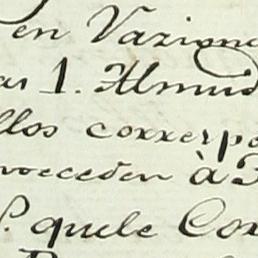 en Varion
as 1. Almud
llos correrpo
roceden à 3
P. quele Cor